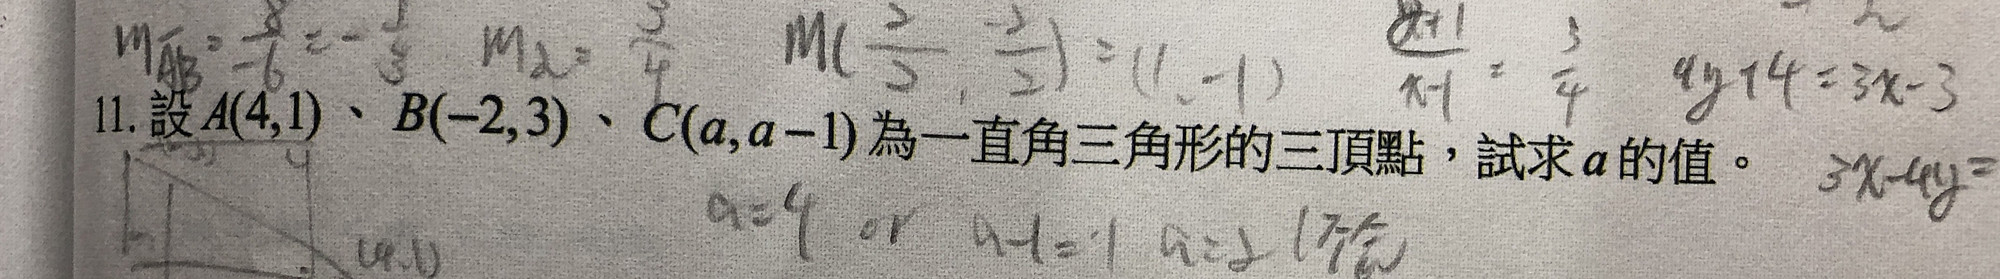 m_AB = 8/-6 = - /3 m₂ = 3/4 M(2/2, -2/2) = (1, -1) y+1/x-1 = 3/4 4y+4=3x-3
11. 設 A(4,1)、B(−2,3)、C(a,a−1) 為一直角三角形的三頂點，試求 a 的值。
3x-4y=
a=4 or a-1=1 a=2
(4,1)